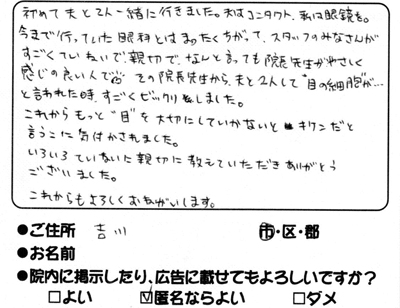 初めて夫と2人一緒に行きました。夫はコンタクト、私は眼鏡を。
今まで行っていた眼科とはまったくちがって、スタッフのみなさんが
すごくていねいで、親切で、なんと言っても院長先生がやさしく
感じの良い人で その院長先生から、夫と2人して"目の細胞が…
と言われた時、すごくビックリしました。
これからもっと"目"を大切にしていかないとキケンだと
言うこに気付かされました。
いろいろていねいに親切に教えていただきありがとう
ございました。
これからもよろしくおねがいします。
●ご住所 吉川 市・区・郡
●お名前
●院内に掲示したり、広告に載せてもよろしいですか?
□よい ☑匿名ならよい □ダメ